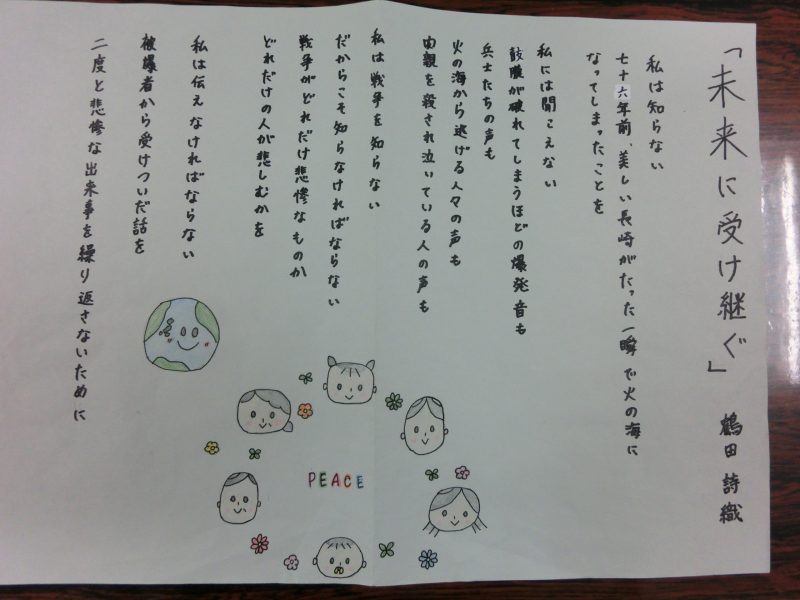 「未来に受け継ぐ」
鶴田 詩織
私は知らない
七十六年前、美しい長崎がたった一瞬で火の海に
なってしまったことを
私には聞こえない
鼓膜が破れてしまうほどの爆発音も
兵士たちの声も
火の海から逃げる人々の声も
肉親を殺され泣いている人の声も
私は戦争を知らない
だからこそ知らなければならない
戦争がどれだけ悲惨なものか
どれだけの人が悲しむかを
私は伝えなければならない
被爆者から受けついだ話を
二度と悲惨な出来事を繰り返さないために
PEACE